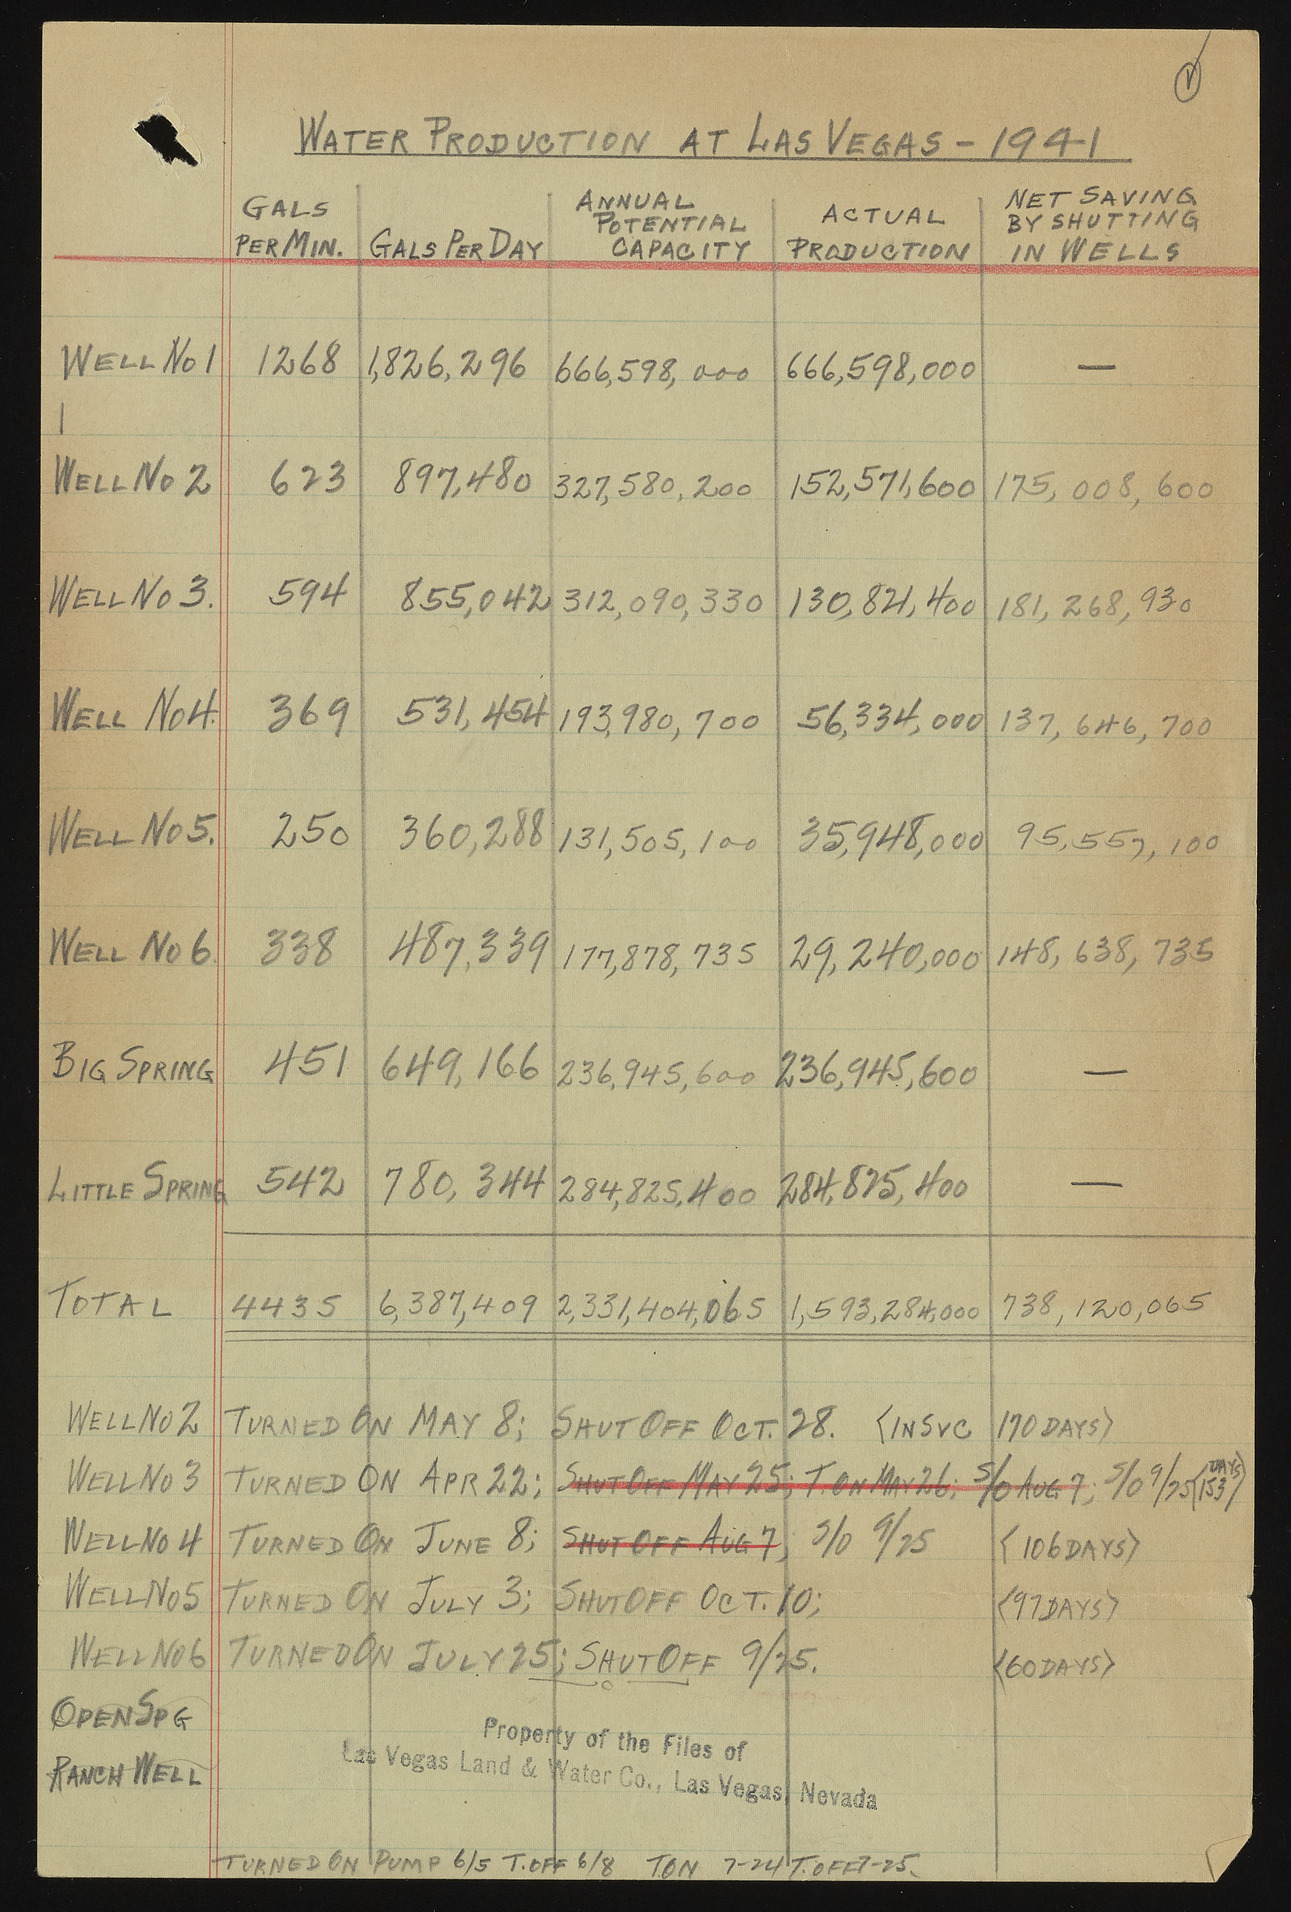 WATER PRODUCTION AT LAS VEGAS - 1941
GALS PER MIN. GALS PER DAY ANNUAL POTENTIAL CAPACITY ACTUAL PRODUCTION NET SAVING BY SHUTTING IN WELLS
WELL NO 1 1268 1,826,296 666,598,000 666,598,000 —
WELL NO 2 623 897,480 327,580,200 152,571,600 175,008,600
WELL NO 3. 594 855,042 312,090,330 130,821,400 181,268,930
WELL NO 4. 369 531,454 193,980,700 56,334,000 137,646,700
WELL NO 5. 250 360,288 131,505,100 35,948,000 95,557,100
WELL NO 6. 338 487,339 177,878,735 29,240,000 148,638,735
BIG SPRING 451 649,166 236,945,600 236,945,600 —
LITTLE SPRING 542 780,344 284,825,400 284,825,400 —
TOTAL 4435 6,387,409 2,331,404,065 1,593,284,000 738,120,065
WELL NO 2 TURNED ON MAY 8; SHUT OFF OCT. 28. (IN SVC 170 DAYS)
WELL NO 3 TURNED ON APR 22; SHUT OFF MAY 25; T. ON MAY 26; S/O AUG 7; S/O 9/25 (153 DAYS)
WELL NO 4 TURNED ON JUNE 8; SHUT OFF AUG 7; S/O 9/25 (106 DAYS)
WELL NO 5 TURNED ON JULY 3; SHUT OFF OCT. 10; (97 DAYS)
WELL NO 6 TURNED ON JULY 25; SHUT OFF 9/25. (60 DAYS)
OPEN SPG
RANCH WELL
Property of the Files of
Las Vegas Land & Water Co., Las Vegas, Nevada
TURNED ON PUMP 6/5 T. OFF 6/8 T. ON 7-24 T. OFF 7-25.